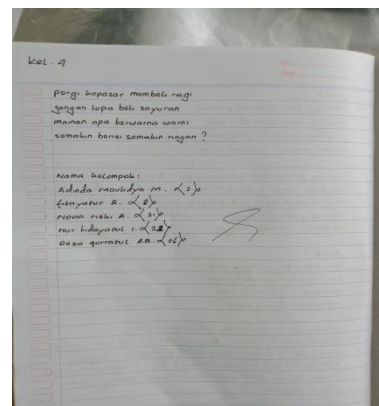 Kel. 4
pergi kepasar membeli ragi
jangan lupa beli sayuran
mainan apa berwarna warni
semakin berisi semakin ringan ?
Nama kelompok :
Adinda Maulidya M. (2)
fitriyatur R. (8)
Novia riski A. (21)
Nur hidayatul I. (28)
Reza qurratul (06)